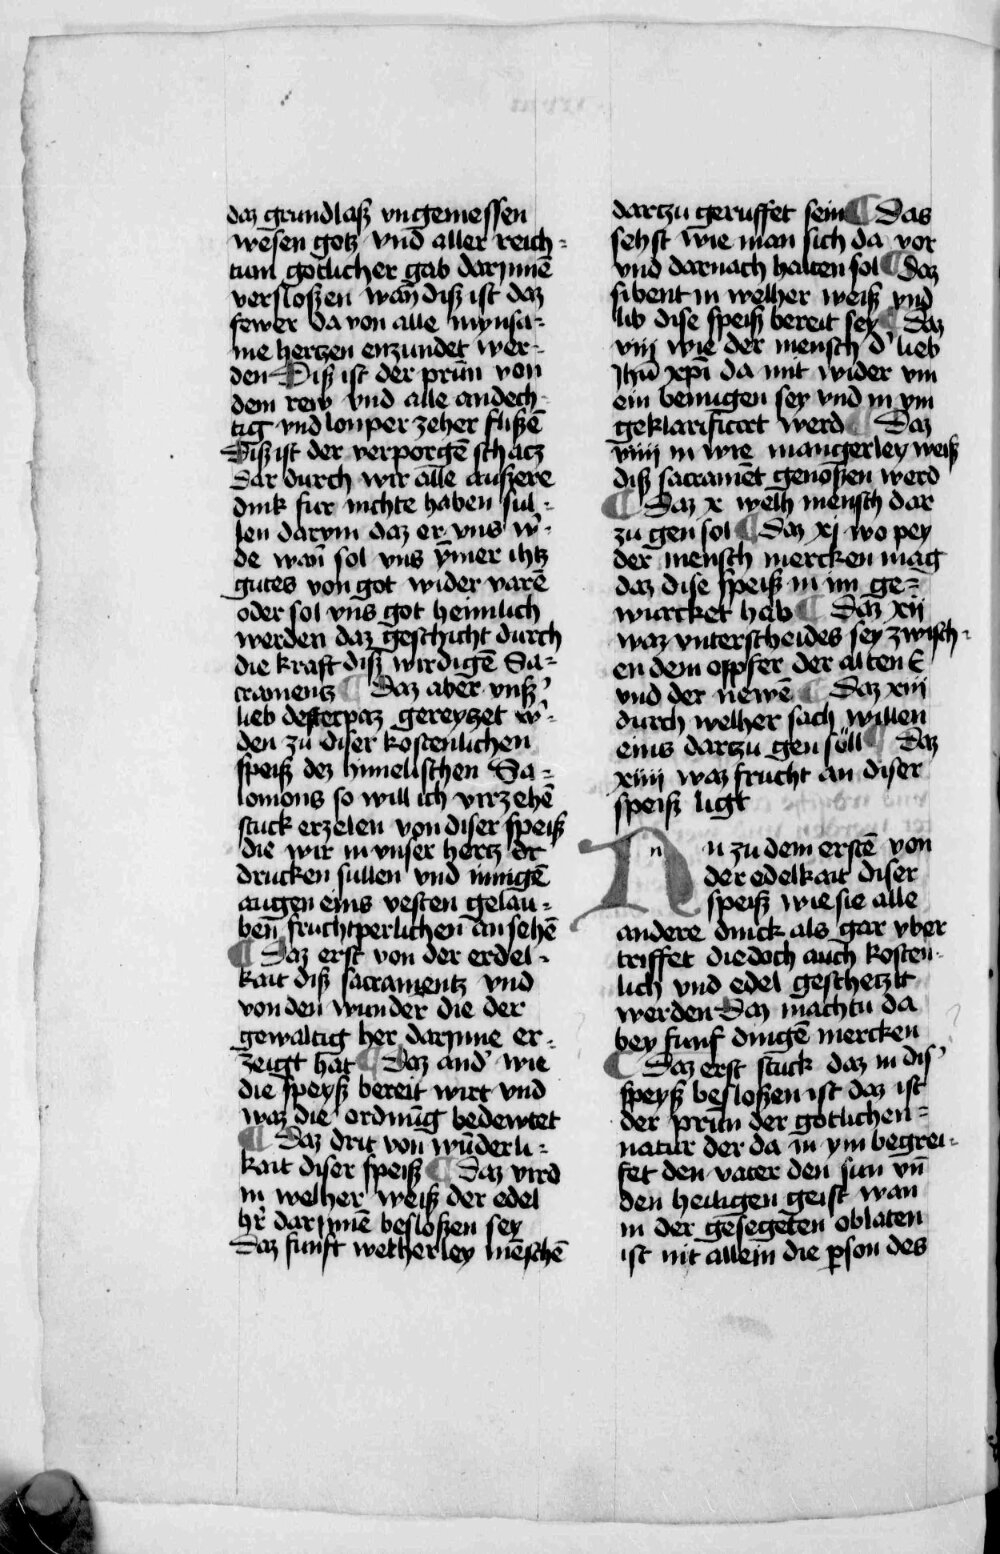 daz grundlasz vngemessen
wesen gotz vnd aller reich-
tum gotlicher gab darjnnē
versloszen wan̄ disz ist daz
fewer da von alle mynsa-
me hertzen enzundet wer-
den Disz ist der prūn von
dem rew vnd alle andech-
tig vnd louper zeher fliszē
Disz ist der verporgē schacz
Dar durch wir alle auszere
dink fur nichte haben sul-
len darvm daz er vns w̉-
de wan̄ sol vns ymer ihtz
gutes von got wider varē
oder sol vns got heimlich
werden daz geschicht durch
die kraft disz wirdigē Sa-
cramentz ¶ Daz aber vnsz̓
lieb desterpaz gereytzet w̉-
den zu diser kostenlichen
speisz dez himelischen Sa-
lomons so will ich virzehē
stuck erzelen von diser speisz
die wir in vnser hertz dr
drucken sullen vnd innigē
augen eins vesten gelau-
ben̄ fruchtperlichen ansehē
¶ Daz erst von der erdel-
kait disz sacramentz vnd
von den wunder die der
gewaltig her darjnne er-
zeigt hat ¶ Daz and̓ wie
die speysz bereit wirt vnd
waz die ordnūg bedewtet
¶ Daz drit von wūderli-
kait diser speisz ¶ Daz vird
in welher weisz der edel
hr̓ darjnnē besloszen sey
Daz funft welherley mēschē
dartzu geruffet sein ¶ Das
sehst wie man sich da vor
vnd darnach halten sol ¶ Daz
sibent in welher weisz vnd
lib dise speisz bereit sey ¶ Daz
viij wie der mensch d̓ lieb
Jhū xp̄i da mit wider vm
ein beinigen sey vnd in ym
geklarificirt werd ¶ Daz
viiij in wie mangerley weisz
disz sacramēt genoszen werd
¶ Daz x welh mensch dar
zu gen sol ¶ Daz xj wo pey
der mensch mercken mag
daz dise speisz in im ge-
wurcket hab ¶ Daz xij
waz vnterscheides sey zwisch-
en dem opfer der alten E
vnd der newē ¶ Daz xiij
durch welher sach willen
eins dartzu gen söll ¶ Daz
xiiij waz frucht an diser
speisz ligt
Nu zu dem erstē von
der edelkait diser
speisz wie sie alle
andere dinck als gar vber
triffet die doch auch kosten-
lich vnd edel geschetzlt
werden Daz machtu da
bey funf dingē mercken
¶ Daz erst stuck daz in dis̓
speysz besloszen ist daz ist
der prūn der gotlichen-
natur der da in ym begrei-
fet den vater den sun vn̄
den heiligen geist wan
in der gesegeten oblaten
ist nit allein die ꝑson des